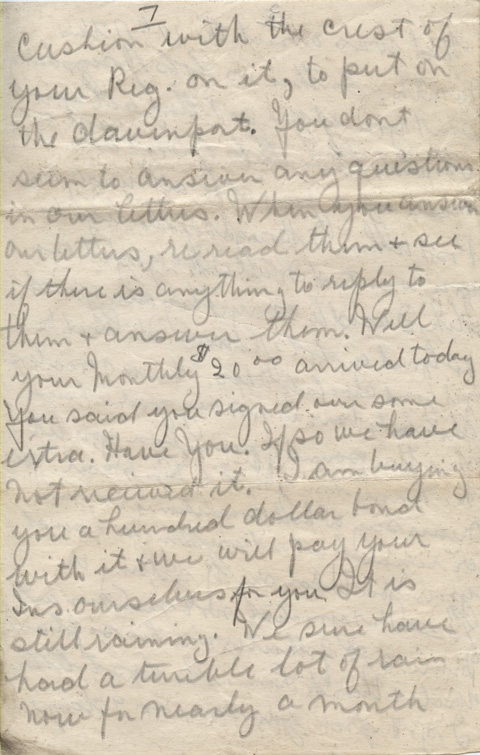 7
Cushion with the crest of
your Reg. on it, to put on
the davinport. You dont
seem to answer any questions
in our letters. When you answer
our letters, re read them + see
if there is anything to reply to
them + answer them. Well
your Monthly $20.00 arrived today
You said you signed over some
extra. Have You. If so we have
not recieved it. I am buying
you a hundred dollar bond
with it + we will pay your
Ins ourselves for you. It is
still raining. We sure have
had a terrible lot of rain
now for nearly a month